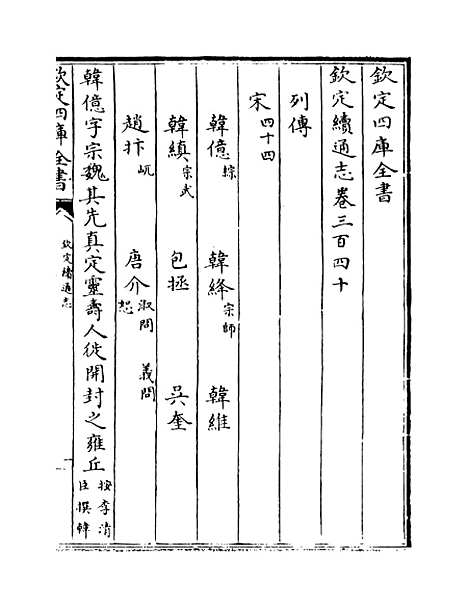 欽定四庫全書
欽定續通志卷三百四十
列傳
宋四十四
韓億綜 韓絳宗師 韓維
韓縝宗武 包拯 吳奎
趙抃㞦 唐介淑問 義問 恕
韓億字宗魏其先真定靈壽人徙開封之雍丘按李清臣撰韓
欽定四庫全書
欽定續通志